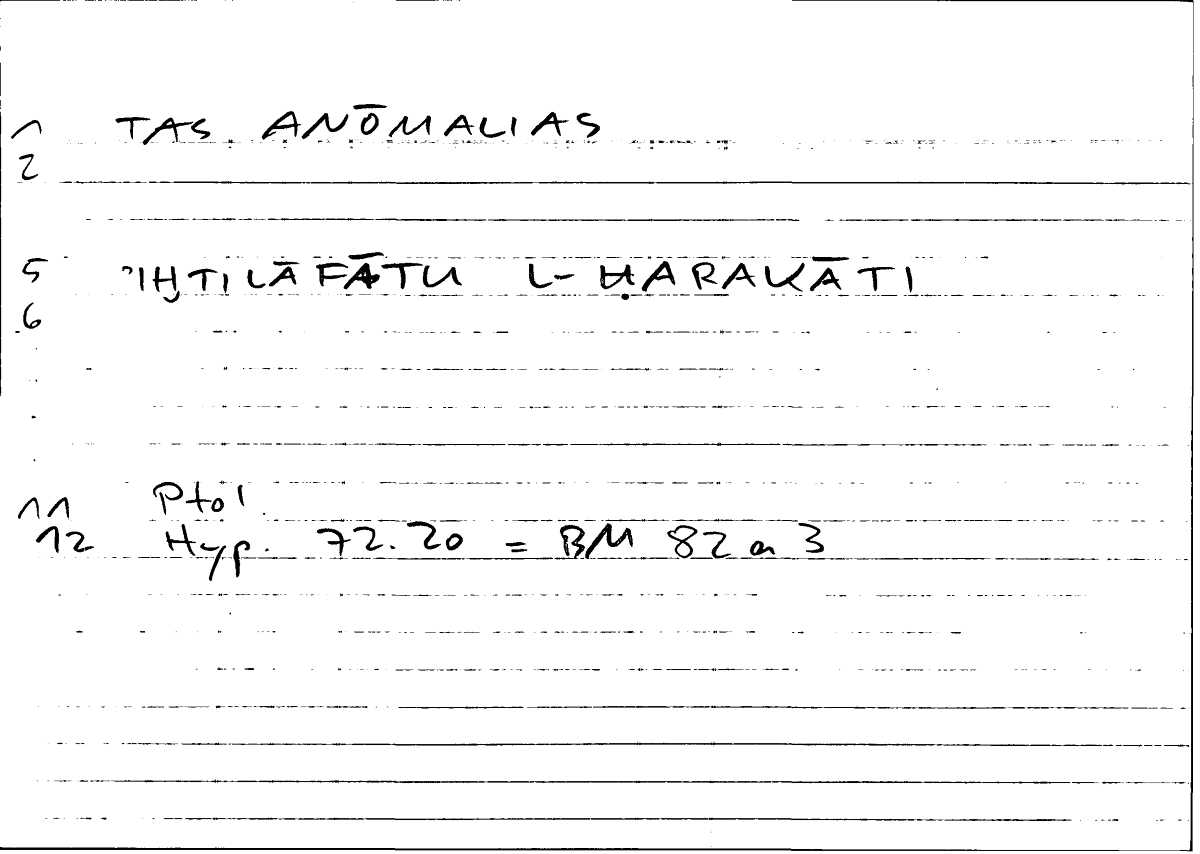 1 TAS ANŌMALIAS
2
5 ʾIḪTILĀFĀTU L-ḤARAKĀTI
6
11 Ptol.
12 Hyp. 72.20 = BM 82 a 3